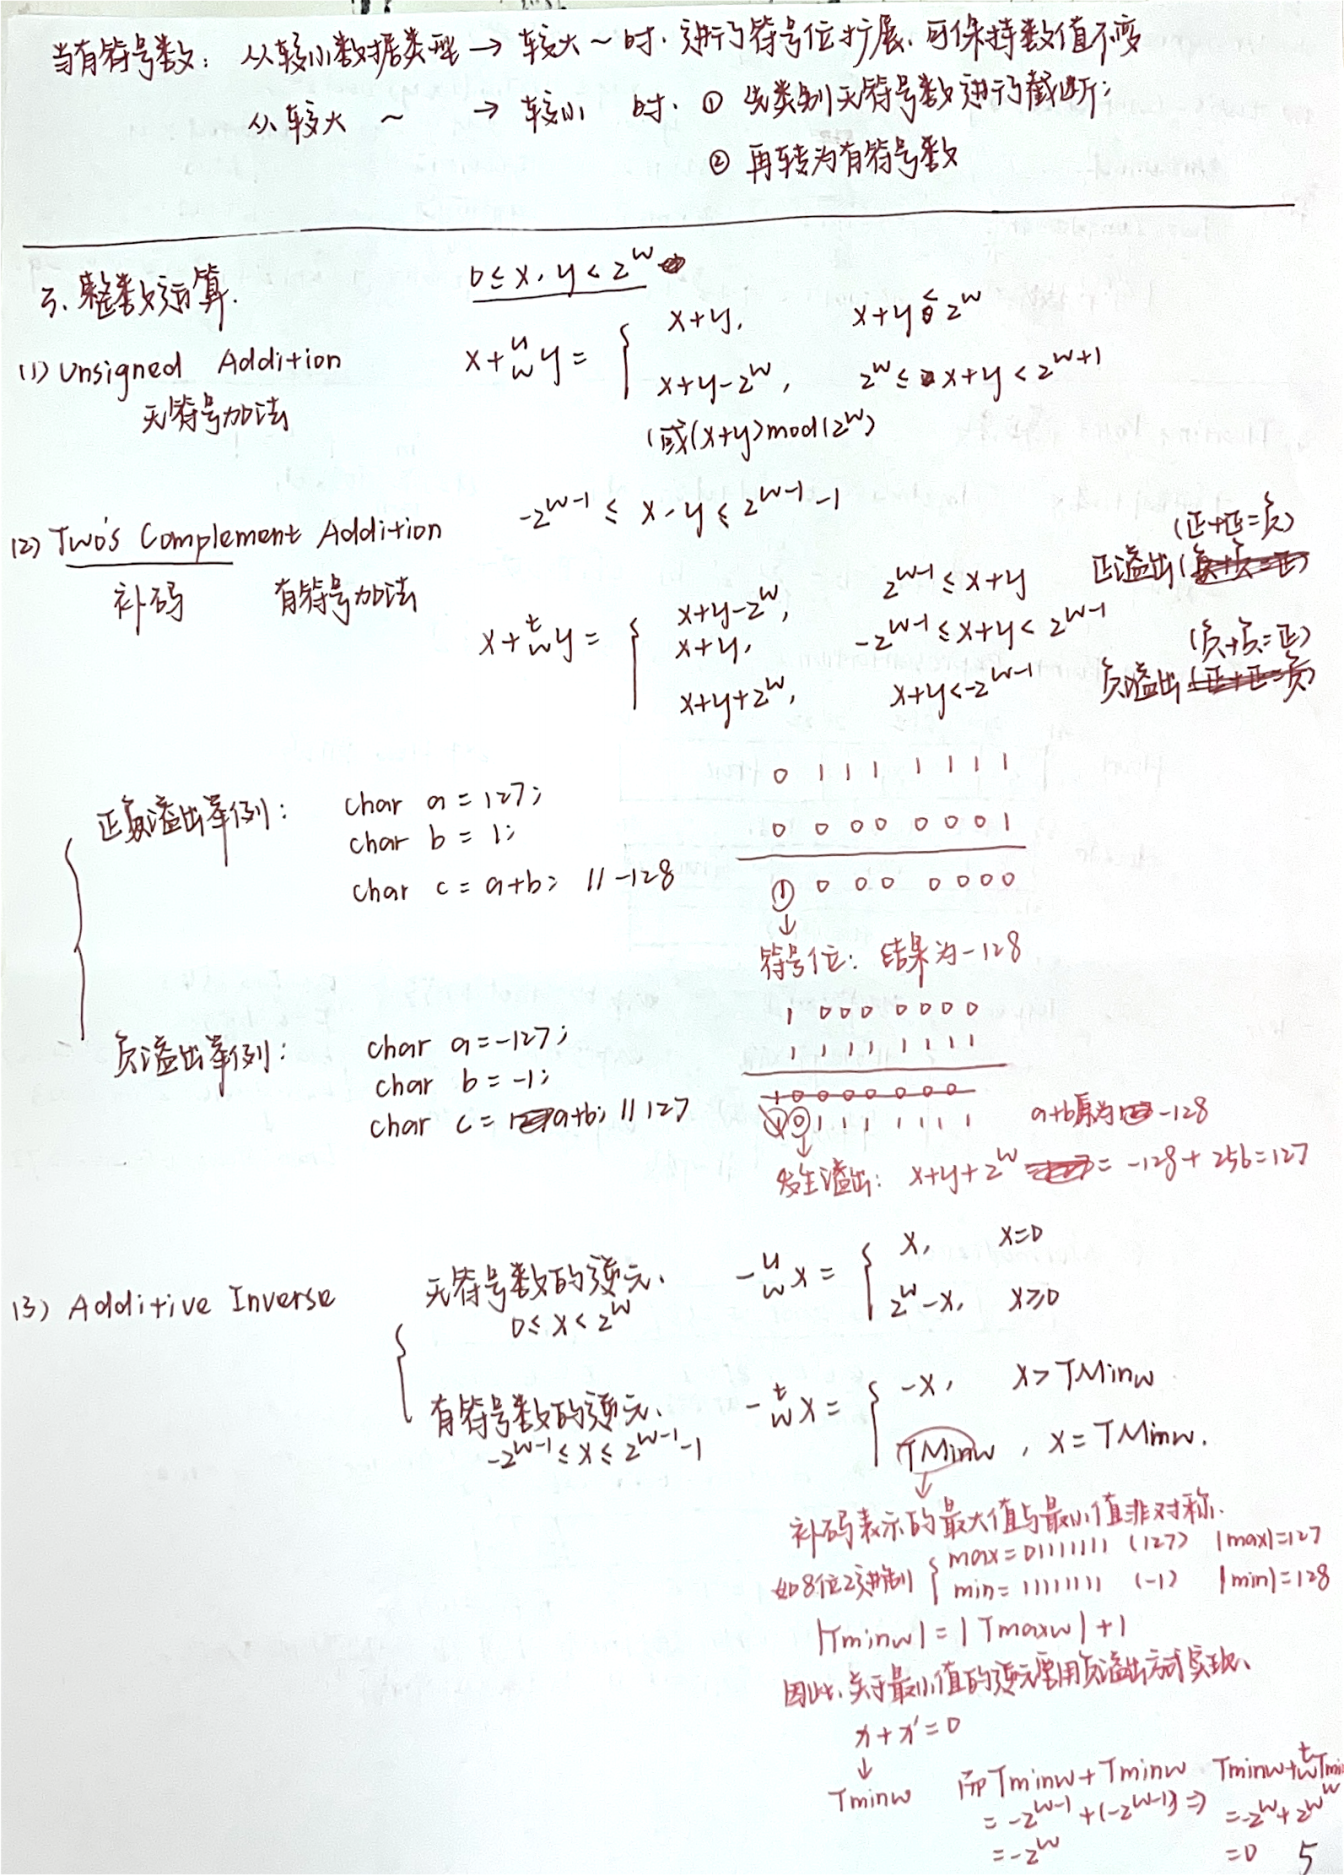 当有符号数： 从较小数据类型 → 较大～时. 进行符号位扩展、可保持数值不变
从较大 ～ → 较小 时. ① 先类别无符号数进行截断；
② 再转为有符号数
3. 整数运算. 0≤x, y<2^w
(1) Unsigned Addition x+^u_w y = { x+y, x+y<2^w
无符号加法 x+y-2^w, 2^w≤x+y<2^{w+1}
(或(x+y)mod(2^w)
(2) Two's Complement Addition -2^{w-1} ≤ x, y ≤ 2^{w-1}-1
补码 有符号加法
x+^t_w y = { x+y-2^w, 2^{w-1}≤x+y 正溢出 (正+正=负)
x+y, -2^{w-1}≤x+y<2^{w-1}
x+y+2^w, x+y<-2^{w-1} 负溢出 (负+负=正)
正溢出举例： char a=127;
char b = 1;
char c = a+b; //-128
0 1 1 1 1 1 1 1
0 0 0 0 0 0 0 1
1 0 0 0 0 0 0 0
↓
符号位：结果为-128
负溢出举例： char a=-127;
char b = -1;
char c = a+b; //127
1 0 0 0 0 0 0 0
1 1 1 1 1 1 1 1
1 0 1 1 1 1 1 1 1 a+b原为-128
↓
发生溢出： x+y+2^w = -128+256=127
(3) Additive Inverse { 无符号数的逆元、 -^u_w x = { x, x=0
0≤x<2^w 2^w-x, x≥0
有符号数的逆元、 -^t_w x = { -x, x>TMinw
-2^{w-1}≤x≤2^{w-1}-1 TMinw, x=TMinw.
↓
补码表示的最大值与最小值非对称.
如8位2进制 { max=01111111 (127) |max|=127
min=11111111 (-1) |min|=128
|Tminw|=|Tmaxw|+1
因此、关于最小值的逆元要用负溢出方式实现、
x+x'=0
↓
Tminw 而Tminw+Tminw Tminw+^t_w Tmi
=-2^{w-1}+(-2^{w-1}) ⇒ =-2^w+2^w
=-2^w =0
5